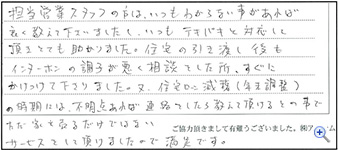 担当営業スタッフの方は、いつもわからない事があれば
良く教えて下さいましたし、いつもテキパキと対応して
頂きとても助かりました。住宅の引き渡し後も
インターホンの調子が悪く相談した所、すぐに
かけつけて下さりました。又、住宅ローン減税(年末調整)
の時期には、不明点あれば連絡したら教えて頂けるとの事で
ただ家を売るだけではない
サービスをして頂けましたので満足です。
ご協力頂きまして有難うございました。㈱ア ーム